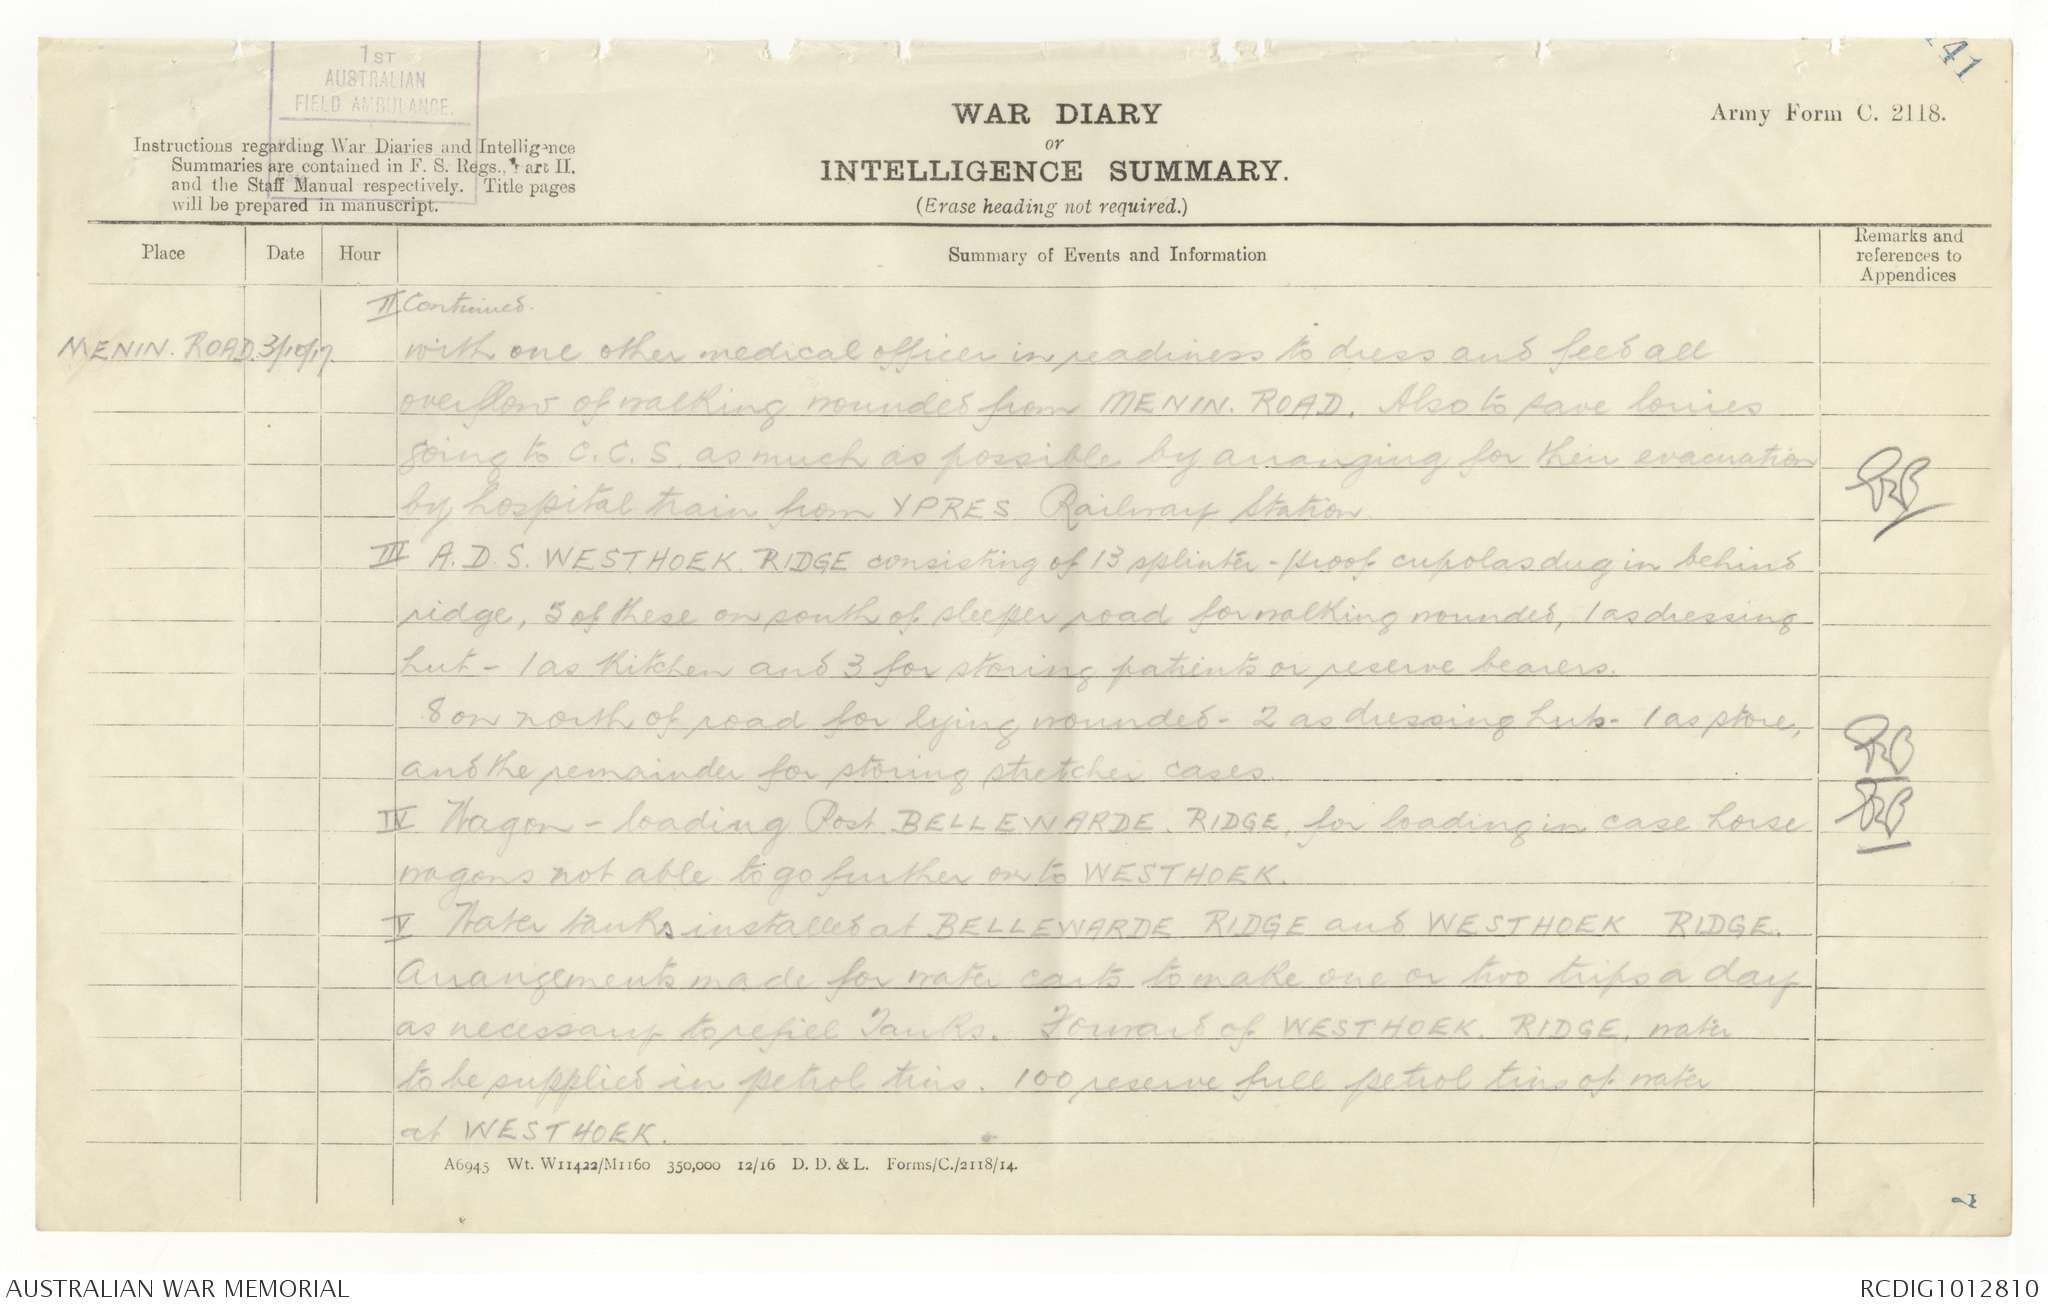 1ST
AUSTRALIAN
FIELD AMBULANCE.
141
WAR DIARY
or
INTELLIGENCE SUMMARY.
(Erase heading not required.)
Army Form C. 2118.
Instructions regarding War Diaries and Intelligence
Summaries are contained in F. S. Regs., Part II.
and the Staff Manual respectively. Title pages
will be prepared in manuscript.
Place Date Hour Summary of Events and Information Remarks and references to Appendices
II Continued.
MENIN. ROAD. 3/10/17. with one other medical officer in readiness to dress and feed all
overflow of walking wounded from MENIN. ROAD. Also to save lorries
going to C.C.S. as much as possible by arranging for their evacuation
by hospital train from YPRES Railway Station.
III A.D.S. WESTHOEK. RIDGE consisting of 13 splinter-proof cupolas dug in behind
ridge, 5 of these on south of sleeper road for walking wounded, 1 as dressing
hut - 1 as Kitchen and 3 for storing patients or reserve bearers.
8 on north of road for lying wounded - 2 as dressing huts - 1 as store,
and the remainder for storing stretcher cases.
IV Wagon - loading Post BELLEWARDE. RIDGE, for loading in case horse
wagons not able to go further on to WESTHOEK.
V Water tanks installed at BELLEWARDE RIDGE and WESTHOEK RIDGE.
Arrangements made for water carts to make one or two trips a day
as necessary to refill Tanks. Forward of WESTHOEK. RIDGE, water
to be supplied in petrol tins. 100 reserve full petrol tins of water
at WESTHOEK.
A6945 Wt. W11422/M1160 350,000 12/16 D. D. & L. Forms/C./2118/14.
AUSTRALIAN WAR MEMORIAL
RCDIG1012810